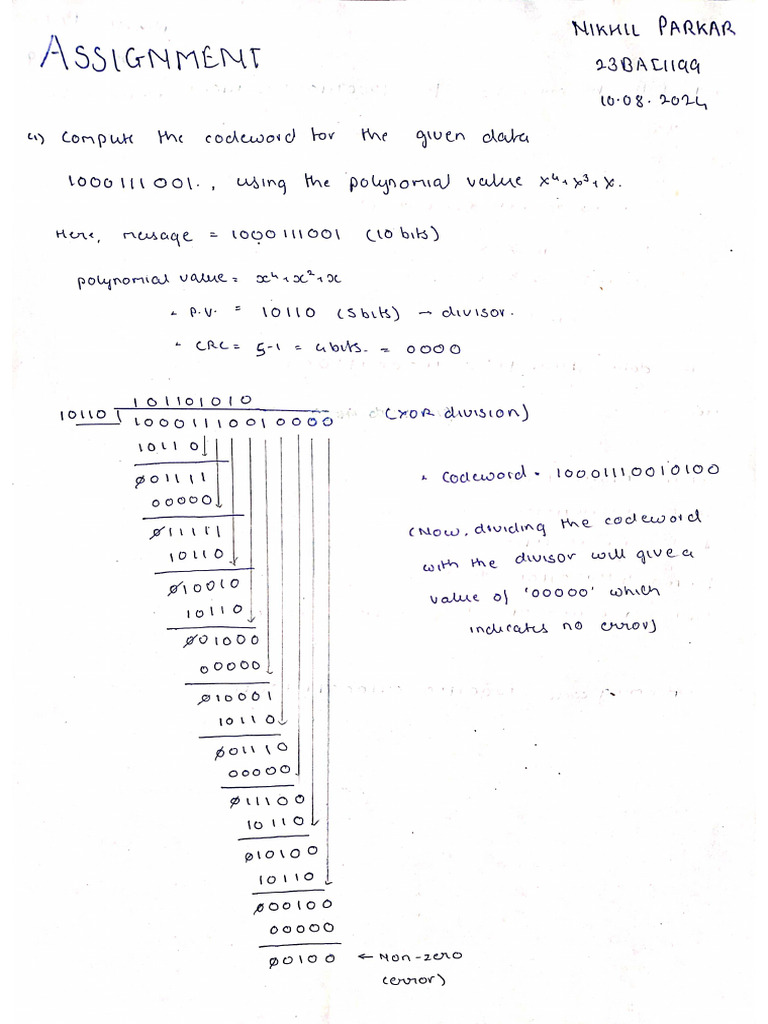 ASSIGNMENT
NIKHIL PARKAR
23BAC1199
10.08.2024
Q1) Compute the codeword for the given data
1000111001., using the polynomial value x⁴+x³+x.
Here, message = 1000111001 (10 bits)
polynomial value = x⁴+x²+x
∴ P.V. = 10110 (5 bits) → divisor.
∴ CRC = 5-1 = 4 bits. = 0000
101101010
10110 ) 10001110010000 (XOR division)
10110
001111
00000
011111
10110
010010
10110
001000
00000
010001
10110
001110
00000
011100
10110
010100
10110
000100
00000
00100 ← Non-zero
(error)
∴ Codeword = 10001110010100
(Now, dividing the codeword
with the divisor will give a
value of '00000' which
indicates no error)